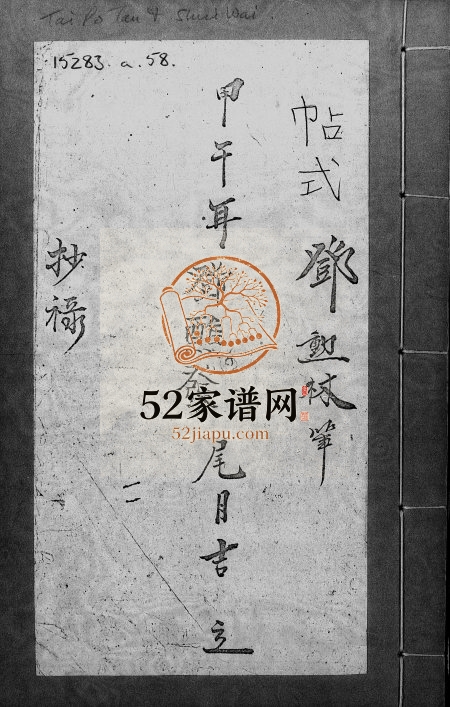 Tai Po Tau & Shui Wai.
15283. a. 58.
帖式
鄧勲林筆
甲午年
酬酢
尾月吉立
抄禄
二
52家谱网
52jiapu.com